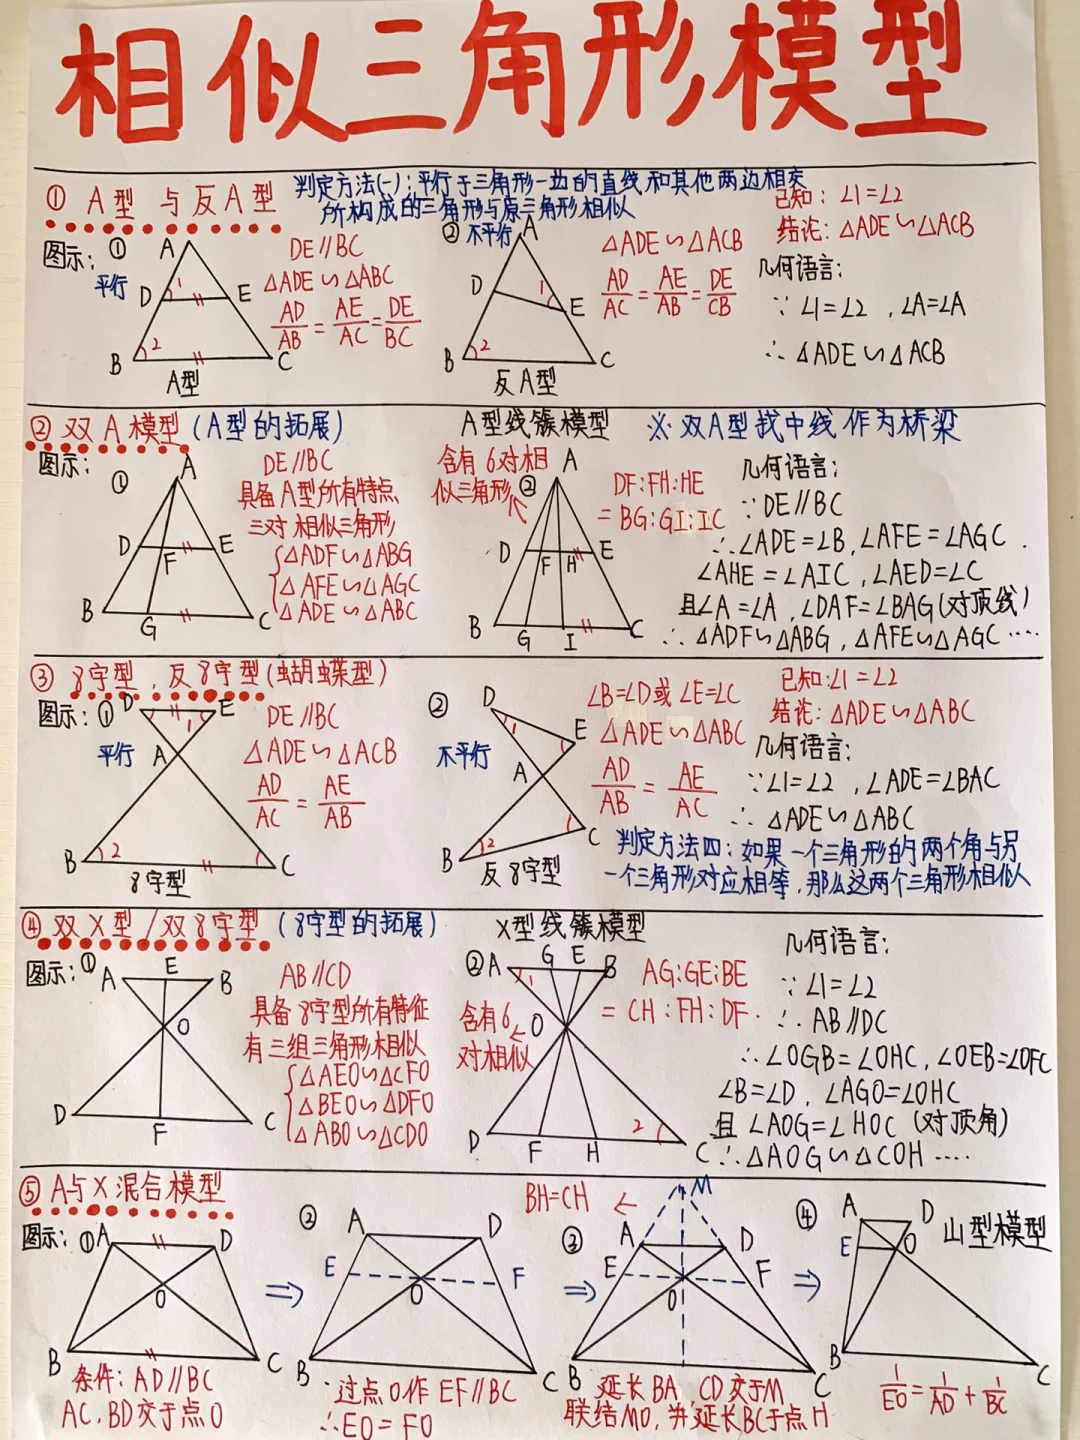 相似三角形模型
① A型 与反A型
判定方法(一):平行于三角形一边的直线和其他两边相交
所构成的三角形与原三角形相似
图示:
①
平行
A
D
E
B
C
1
2
A型
DE//BC
△ADE∽△ABC
AD/AB=AE/AC=DE/BC
② 不平行
A
D
E
B
C
1
2
反A型
△ADE∽△ACB
AD/AC=AE/AB=DE/CB
已知:∠1=∠2
结论:△ADE∽△ACB
几何语言:
∵∠1=∠2,∠A=∠A
∴△ADE∽△ACB
② 双A模型(A型的拓展)
图示:
①
A
D
F
E
B
G
C
DE//BC
具备A型所有特点
三对相似三角形
△ADF∽△ABG
△AFE∽△AGC
△ADE∽△ABC
A型线簇模型
含有6对相
似三角形
②
A
D
F
H
E
B
G
I
C
DF:FH:HE
=BG:GI:IC
※双A型找中线作为桥梁
几何语言:
∵DE//BC
∴∠ADE=∠B,∠AFE=∠AGC.
∠AHE=∠AIC,∠AED=∠C
且∠A=∠A,∠DAF=∠BAG(对顶线)
∴△ADF∽△ABG,△AFE∽△AGC····
③ 8字型,反8字型(蝴蝶型)
图示:①
平行
D
E
A
B
C
1
2
8字型
DE//BC
△ADE∽△ACB
AD/AC=AE/AB
②
不平行
D
E
A
B
C
1
2
反8字型
∠B=∠D或∠E=∠C
△ADE∽△ABC
AD/AB=AE/AC
已知:∠1=∠2
结论:△ADE∽△ABC
几何语言:
∵∠1=∠2,∠ADE=∠BAC
∴△ADE∽△ABC
判定方法四:如果一个三角形的两个角与另
一个三角形对应相等,那么这两个三角形相似
④ 双X型/双8字型(8字型的拓展)
图示:①
A
E
B
O
D
F
C
AB//CD
具备8字型所有特征
有三组三角形相似
△AEO∽△CFO
△BEO∽△DFO
△ABO∽△CDO
X型线簇模型
②
A
G
E
B
1
O
含有6
对相似
D
F
H
2
C
AG:GE:BE
=CH:FH:DF.
几何语言:
∵∠1=∠2
∴AB//DC
∴∠OGB=∠OHC,∠OEB=∠OFC
∠B=∠D,∠AGO=∠OHC
且∠AOG=∠HOC(对顶角)
∴△AOG∽△COH····
⑤ A与X混合模型
图示:①
A
D
O
B
C
条件:AD//BC
AC,BD交于点O
②
A
D
E
O
F
B
C
过点O作EF//BC
∴EO=FO
BH=CH
③
M
A
D
E
F
O
B
C
延长BA,CD交于M
联结MO,并延长BC于点H
④
山型模型
A
D
E
O
B
C
1/EO=1/AD+1/BC